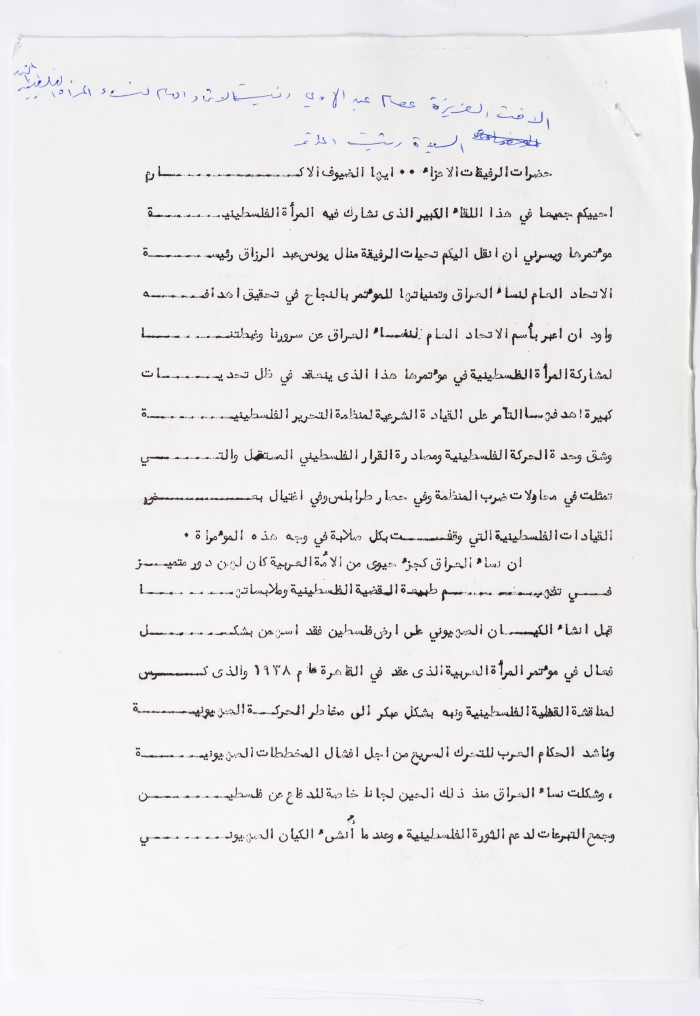 الاخت العزيزة عصام عبد الهادي رئيسة الاتحاد العام لنساء المرأة الفلسطينية
السيدة رئيسة المؤتمر
حضرات الرفيقات الاعزاء ٠٠ ايها الضيوف الاكـــــــارم
احييكم جميعا في هذا اللقاء الكبير الذى نشارك فيه المرأة الفلسطينيـــــــة
موءتمرها ويسرني ان انقل اليكم تحيات الرفيقة منال يونس عبد الرزاق رئيســـة
الاتحاد العام لنساء العراق وتمنياتها للموءتمر بالنجاح في تحقيق اهدافـــــه
واود ان اعبر بأسم الاتحاد العام لنساء العراق عن سرورنا وغبطتنـــــــا
لمشاركة المرأة الفلسطينية في موءتمرها هذا الذى ينعقد في ظل تحديـــــات
كبيرة اهدفهـا التآمر على القيادة الشرعية لمنظمة التحرير الفلسطينيـــــــة
وشق وحدة الحركة الفلسطينية ومصادرة القرار الفلسطيني المستقل والتـــــي
تمثلت في محاولات ضرب المنظمة وفي حصار طرابلس وفي اغتيال بعـــــــض
القيادات الفلسطينية التي وقفـــــت بكل صلابة في وجه هذه الموءامرة ٠
ان نساء العراق كجزء حيوى من الأمة العربية كان لهن دور متميـــز
فـــي تفهـــــم طبيعة القضية الفلسطينية وملابساتهـــــــا
قبل انشاء الكيـــان الصهيوني على ارض فلسطين فقد اسهمن بشكـــــل
فعال في موءتمر المرأة العربية الذى عقد في القاهرة عام ١٩٣٨ والذى كـــرس
لمناقشة القضية الفلسطينية ونبه بشكل مبكر الى مخاطر الحركـــة الصهيونيـــــة
وناشد الحكام العرب للتحرك السريع من اجل افشال المخططات الصهيونيـــــة
، وشكلت نساء العراق منذ ذلك الحين لجانا خاصة للدفاع عن فلسطيـــــن
وجمع التبرعات لدعم الثورة الفلسطينية ٠ وعندما أُنشىء الكيان الصهيونـــــي